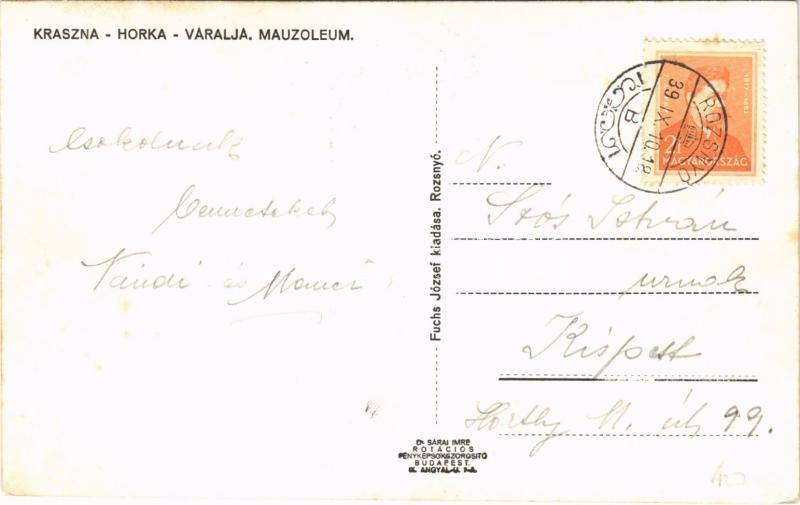 KRASZNA - HORKA - VÁRALJA. MAUZOLEUM.
Csokolunk
Benneteket
Nándi és Manci
Fuchs József kiadása. Rozsnyó.
ROZSNYÓ
39 IX. 10. 18
B
2f
MAGYARORSZÁG
N.
Soós István
urnak
Kispest
Horthy M. út 99.
Dr SÁRAI IMRE
ROTÁCIÓS
FÉNYKÉPSOKSZOROSITÓ
BUDAPEST.
IX. ANGYAL-U. 7-A.